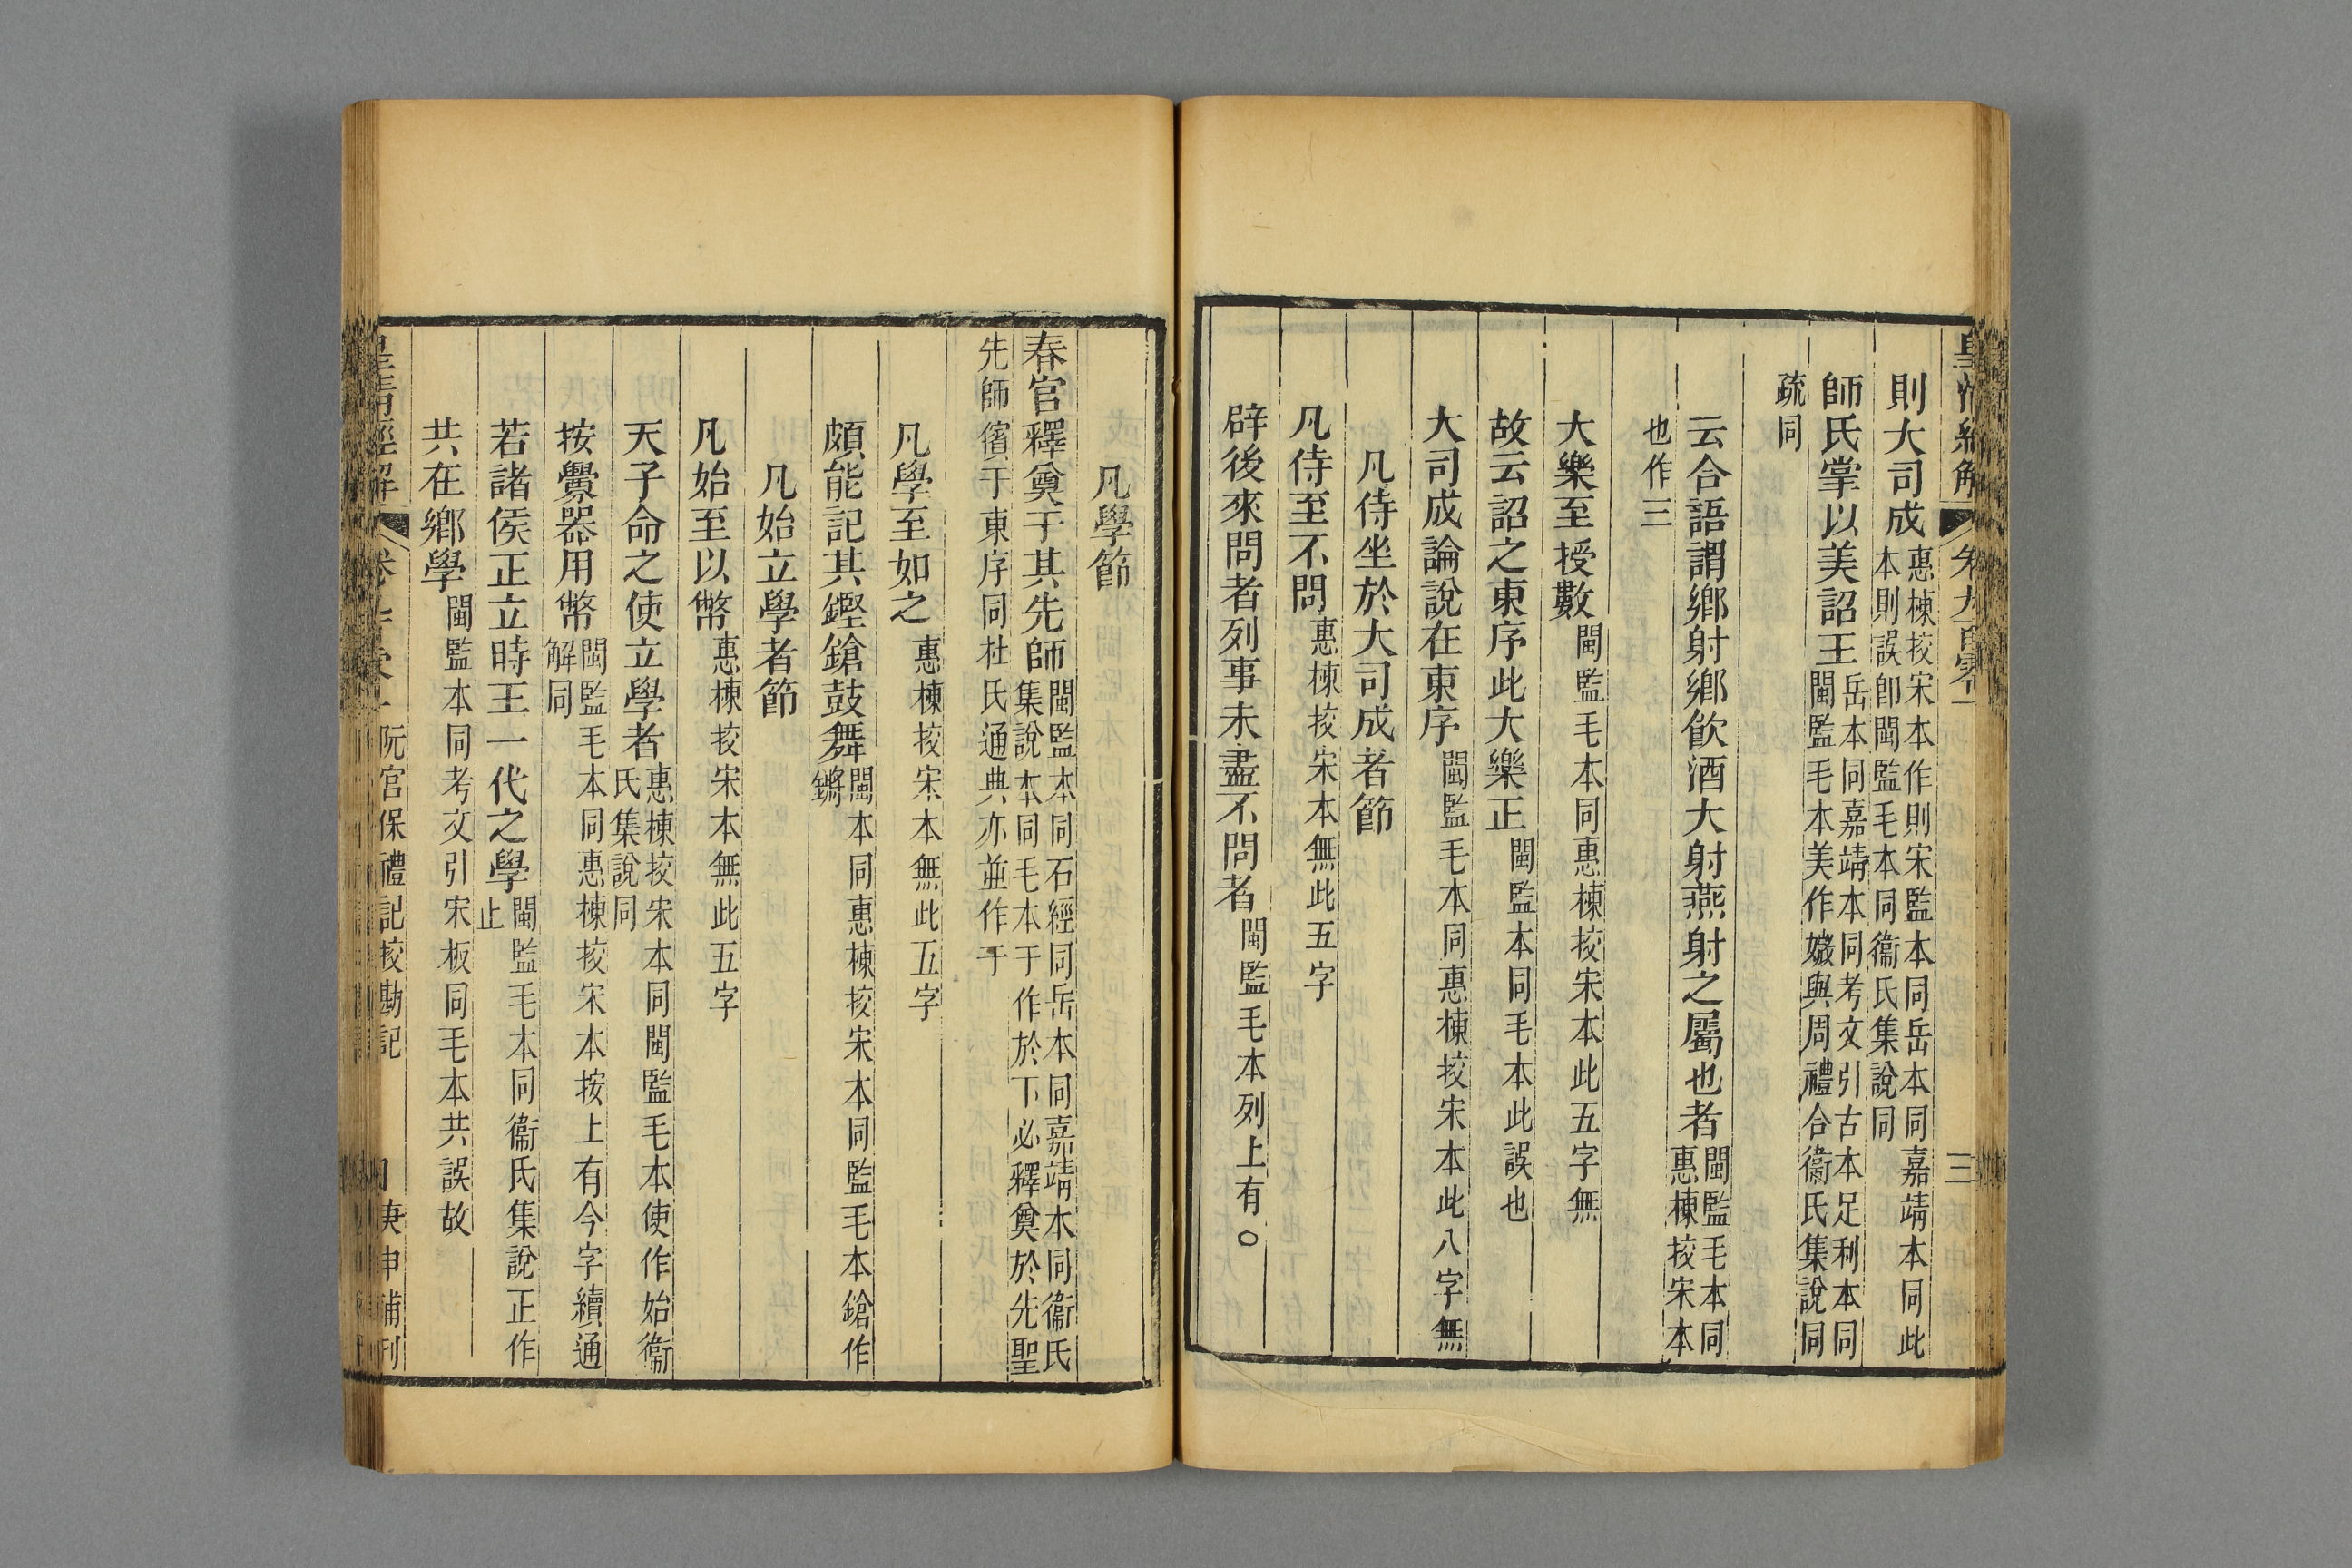 則大司成惠棟挍宋本作則宋監本同岳本同嘉靖本同此本則誤卽閩監毛本同衞氏集說同
師氏掌以美詔王岳本同嘉靖本同考文引古本足利本同閩監毛本美作媺與周禮合衞氏集說同
疏同
云合語謂鄉射鄉飲酒大射燕射之屬也者閩監毛本同惠棟挍宋本
也作三
大樂至授數閩監毛本同惠棟挍宋本此五字無
故云詔之東序此大樂正閩監本同毛本此誤也
大司成論說在東序閩監毛本同惠棟挍宋本此八字無
凡侍坐於大司成者節
凡侍至不問惠棟挍宋本無此五字
辟後來問者列事未盡不問者閩監毛本列上有○
凡學節
春官釋奠于其先師閩監本同石經同岳本同嘉靖本同衞氏集說本同毛本于作於下必釋奠於先聖
先師儐于東序同杜氏通典亦並作于
凡學至如之惠棟挍宋本無此五字
頗能記其鏗鎗鼓舞閩本同惠棟挍宋本同監毛本鎗作鏘
凡始立學者節
凡始至以幣惠棟挍宋本無此五字
天子命之使立學者惠棟挍宋本同閩監毛本使作始衞氏集說同
按釁器用幣閩監毛本同惠棟挍宋本按上有今字續通解同
若諸侯正立時王一代之學閩監毛本同衞氏集說正作止
共在鄉學閩監本同考文引宋板同毛本共誤故
阮宮保禮記挍勘記
庚申補刊